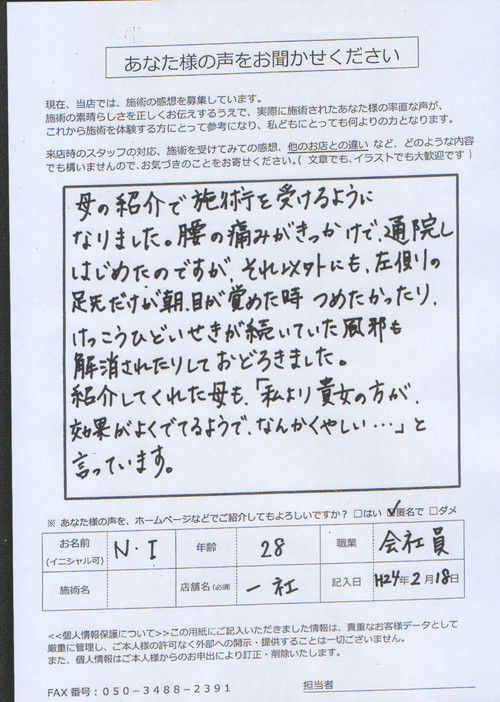 あなた様の声をお聞かせください
現在、当店では、施術の感想を募集しています。
施術の素晴らしさを正しくお伝えするうえで、実際に施術されたあなた様の率直な声が、
これから施術を体験する方にとって参考になり、私どもにとっても何よりの力となります。
来店時のスタッフの対応、施術を受けてみての感想、他のお店との違い など、どのような内容
でも構いませんので、お気づきのことをお寄せください。( 文章でも、イラストでも大歓迎です )
母の紹介で施術を受けるように
なりました。腰の痛みがきっかけで、通院し
はじめたのですが、それ以外にも、左側の
足先だけが朝、目が覚めた時 つめたかったり、
けっこうひどいせきが続いていた風邪も
解消されたりしておどろきました。
紹介してくれた母も、「私より貴女の方が、
効果がよくでてるようで、なんかくやしい…」と
言っています。
※ あなた様の声を、ホームページなどでご紹介してもよろしいですか? □はい ☑匿名で □ダメ
お名前 (イニシャル可) N・I 年齢 28 職業 会社員
施術名 店舗名 (必須) 一社 記入日 H24年2月18日
<<個人情報保護について>>この用紙にご記入いただきました情報は、貴重なお客様データとして
厳重に管理し、ご本人様の許可なく外部への開示・提供することは一切ございません。
また、個人情報はご本人様からのお申出により訂正・削除いたします。
FAX 番号：050-3488-2391 担当者